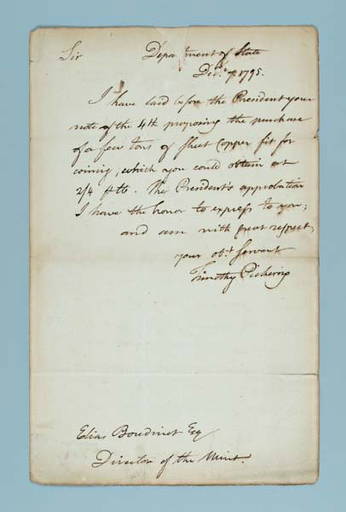 Sir Department of State
Decr. 7. 1795.
I have laid before the President your
note of the 4th proposing the purchase
of a few tons of sheet copper fit for
coining, which you could obtain at
2/4 ⅌ lb. The President's approbation
I have the honor to express to you;
and am with great respect,
your obt. servant
Timothy Pickering
Elias Boudinot Esq
Director of the Mint.